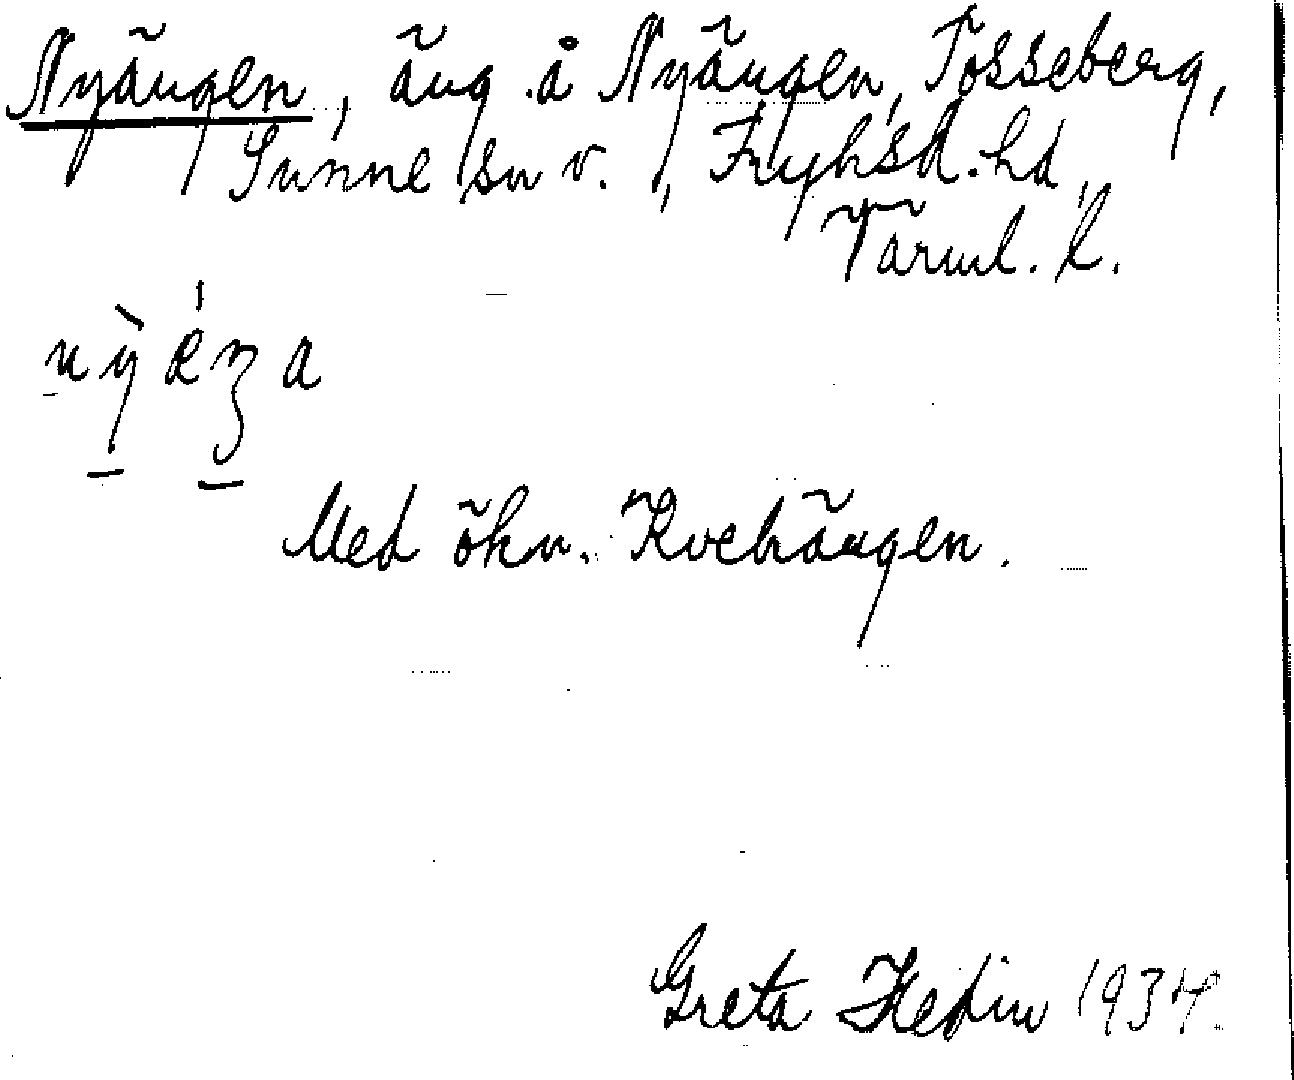 Nyängen, äng å Nyängen, Tosseberg,
Sunne sn v., Fryksd. hd,
Värml. l.
Med ökn. Kvebängen.
Greta Hedin 1934.